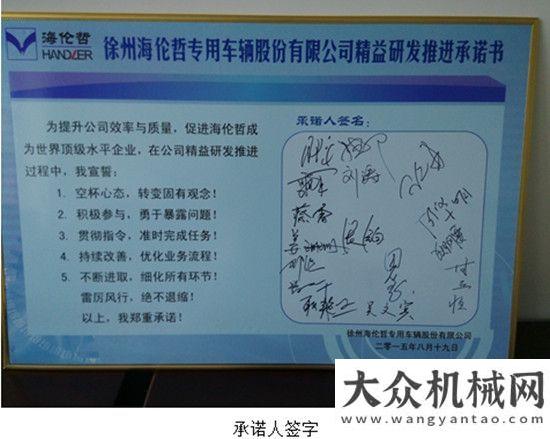 海伦哲
HANDLER
徐州海伦哲专用车辆股份有限公司精益研发推进承诺书
为提升公司效率与质量，促进海伦哲成
为世界顶级水平企业，在公司精益研发推进
过程中，我宣誓：
1. 空杯心态，转变固有观念！
2. 积极参与，勇于暴露问题！
3. 贯彻指令，准时完成任务！
4. 持续改善，优化业务流程！
5. 不断进取，细化所有环节！
雷厉风行，绝不退缩！
以上，我郑重承诺！
承诺人签名：
刘涛
蔡雷
吴文宾
徐州海伦哲专用车辆股份有限公司
二零一五年八月十九日
大众机械网
www.wangyantao.com
承诺人签字